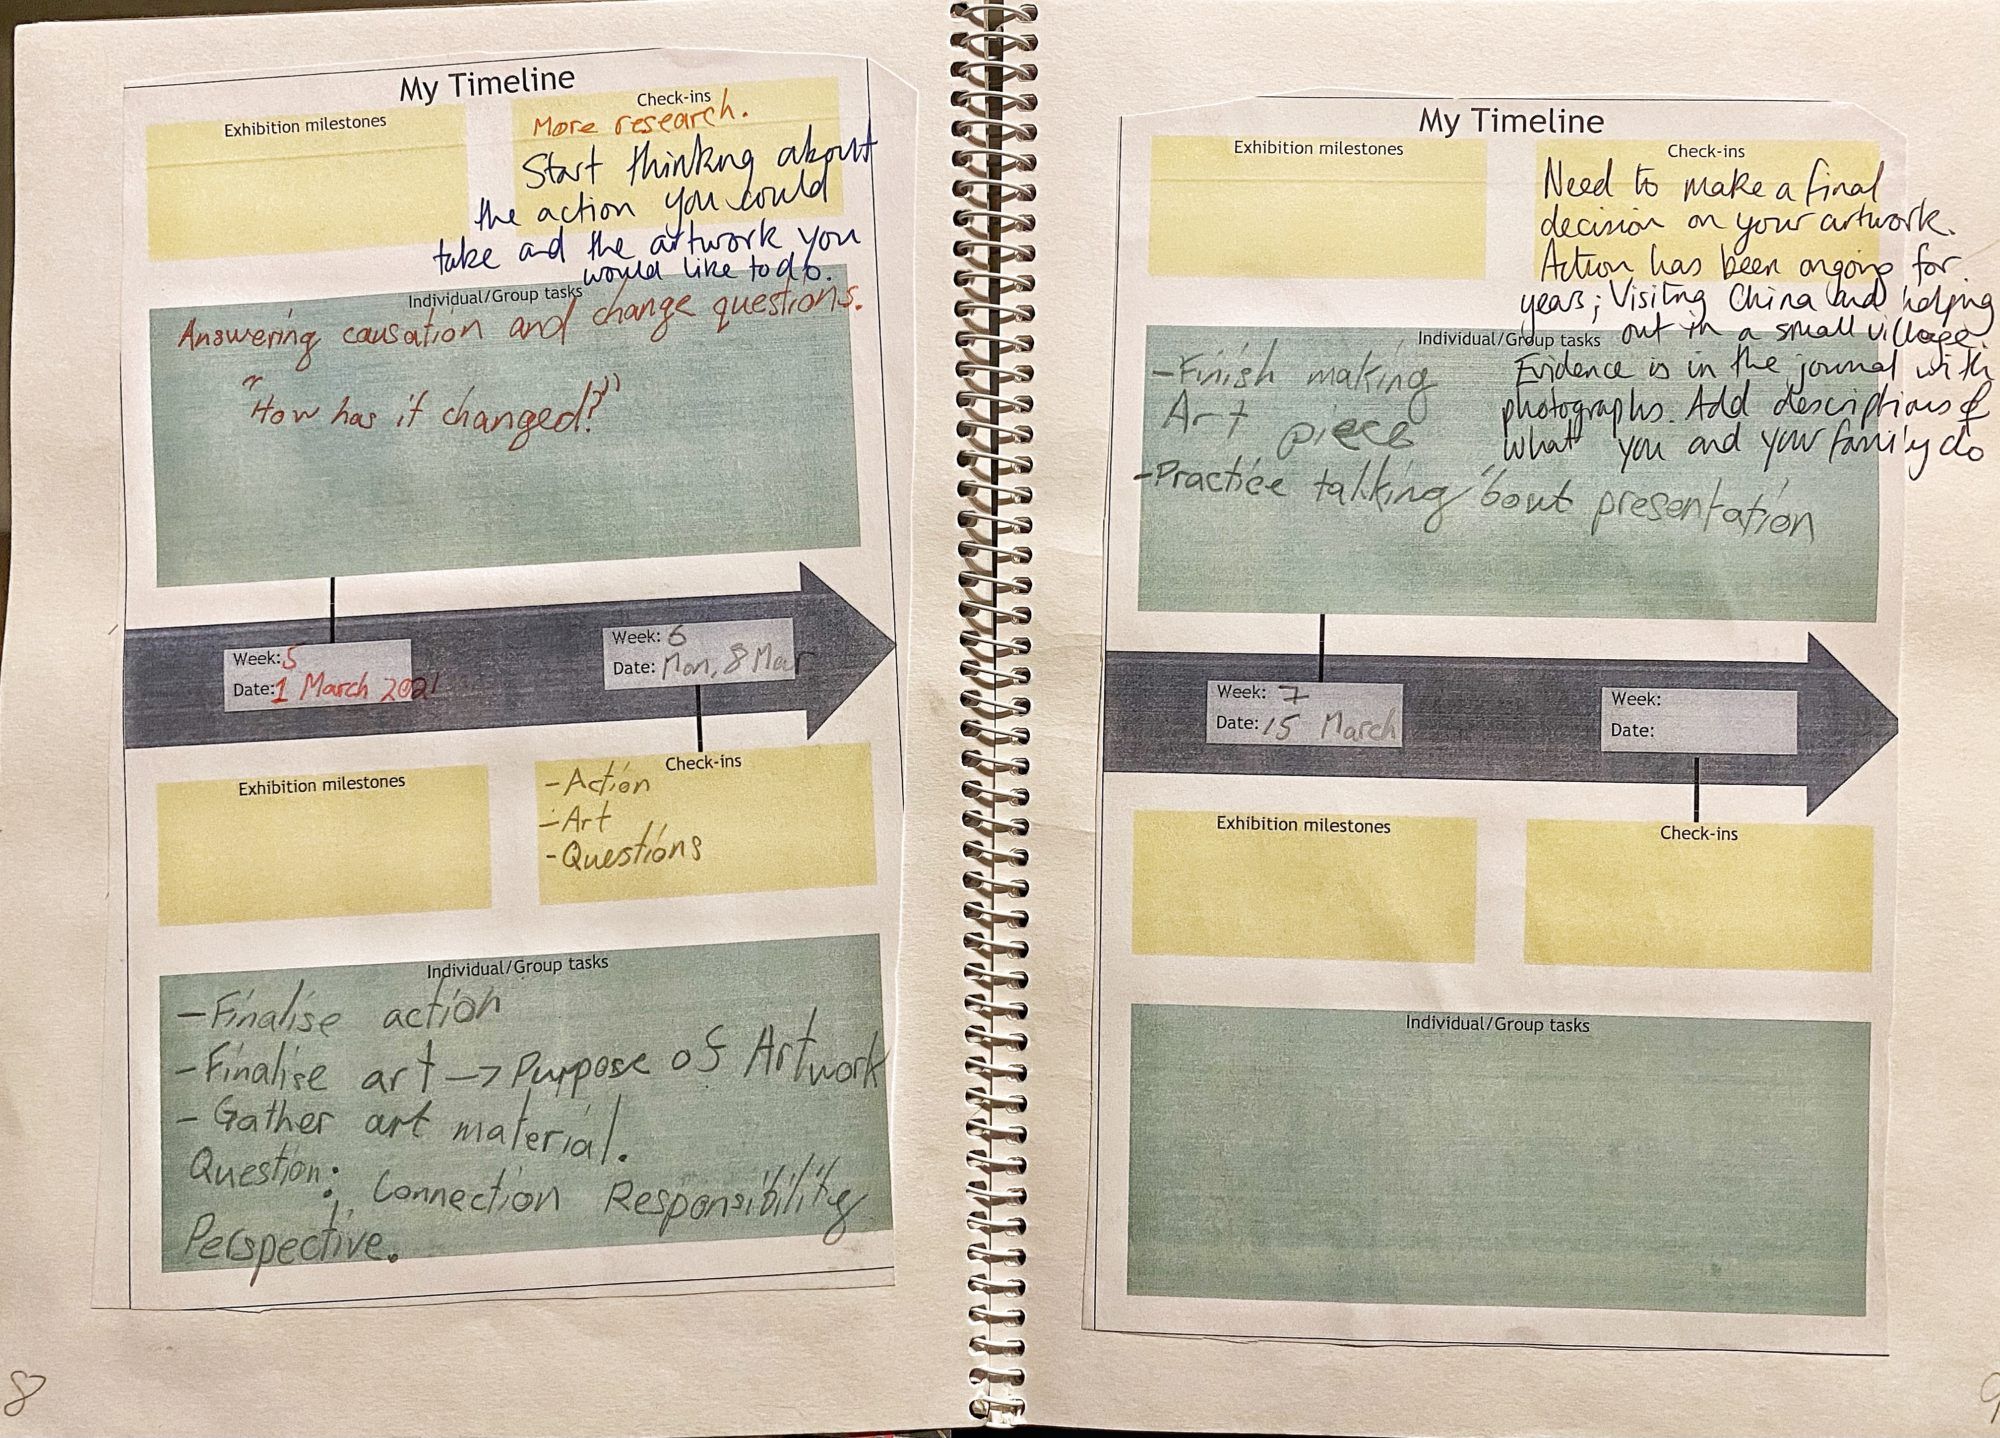 My Timeline
Exhibition milestones
Check-ins
More research.
Start thinking about
the action you could
take and the artwork you
would like to do.
Individual/Group tasks
Answering causation and change questions.
"How has it changed?"
Week: 5
Date: 1 March 2021
Week: 6
Date: Mon, 8 Mar
Exhibition milestones
Check-ins
- Action
- Art
- Questions
Individual/Group tasks
- Finalise action
- Finalise art -> Purpose of Artwork
- Gather art material.
Question: Connection Responsibility
Perspective.
8
My Timeline
Exhibition milestones
Check-ins
Need to make a final
decision on your artwork.
Action has been ongoing for
years; Visiting China and helping
out in a small village.
Evidence is in the journal with
photographs. Add descriptions of
what you and your family do
Individual/Group tasks
- Finish making
Art piece
- Practice talking 'bout presentation
Week: 7
Date: 15 March
Week:
Date:
Exhibition milestones
Check-ins
Individual/Group tasks
9